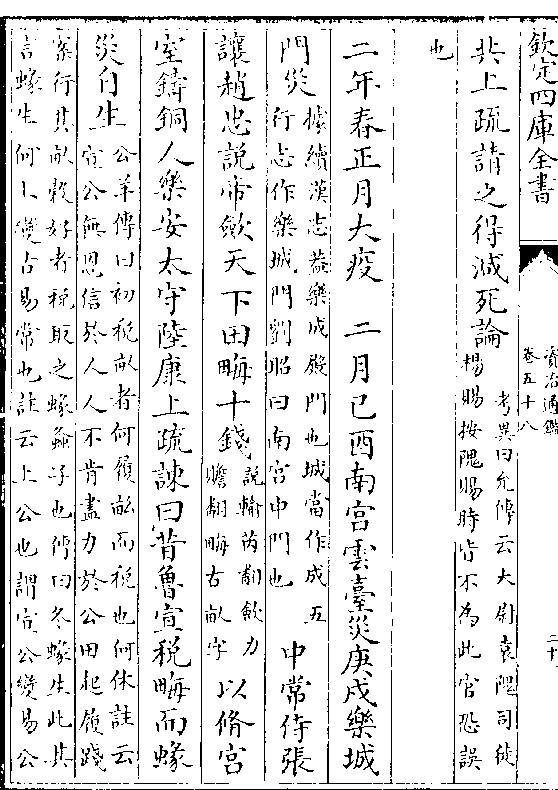 欽定四庫全書
資治通鑑
卷五十八
二十
共上疏請之得減死論
考異曰允傳云大尉袁隗司徒
楊賜按隗賜時皆不為此官恐誤
也
二年春正月大疫　二月己酉南宮雲臺災庚戌樂城
門災
據續漢志葢樂成殿門也城當作成五
行志作樂城門劉昭曰南宮中門也
中常侍張
讓趙忠說帝斂天下田畮十錢
說輸芮翻斂力
贍翻畮古畝字
以脩宮
室鑄銅人樂安太守陸康上疏諫曰昔魯宣稅畮而蝝
災自生
公羊傳曰初稅畝者何履畝而稅也何休註云
宣公無恩信於人人不肯盡力於公田起履踐
案行其畝榖好者稅取之蝝螽子也傳曰冬蝝生此其
言蝝生何上變古易常也註云上公也謂宣公變易公